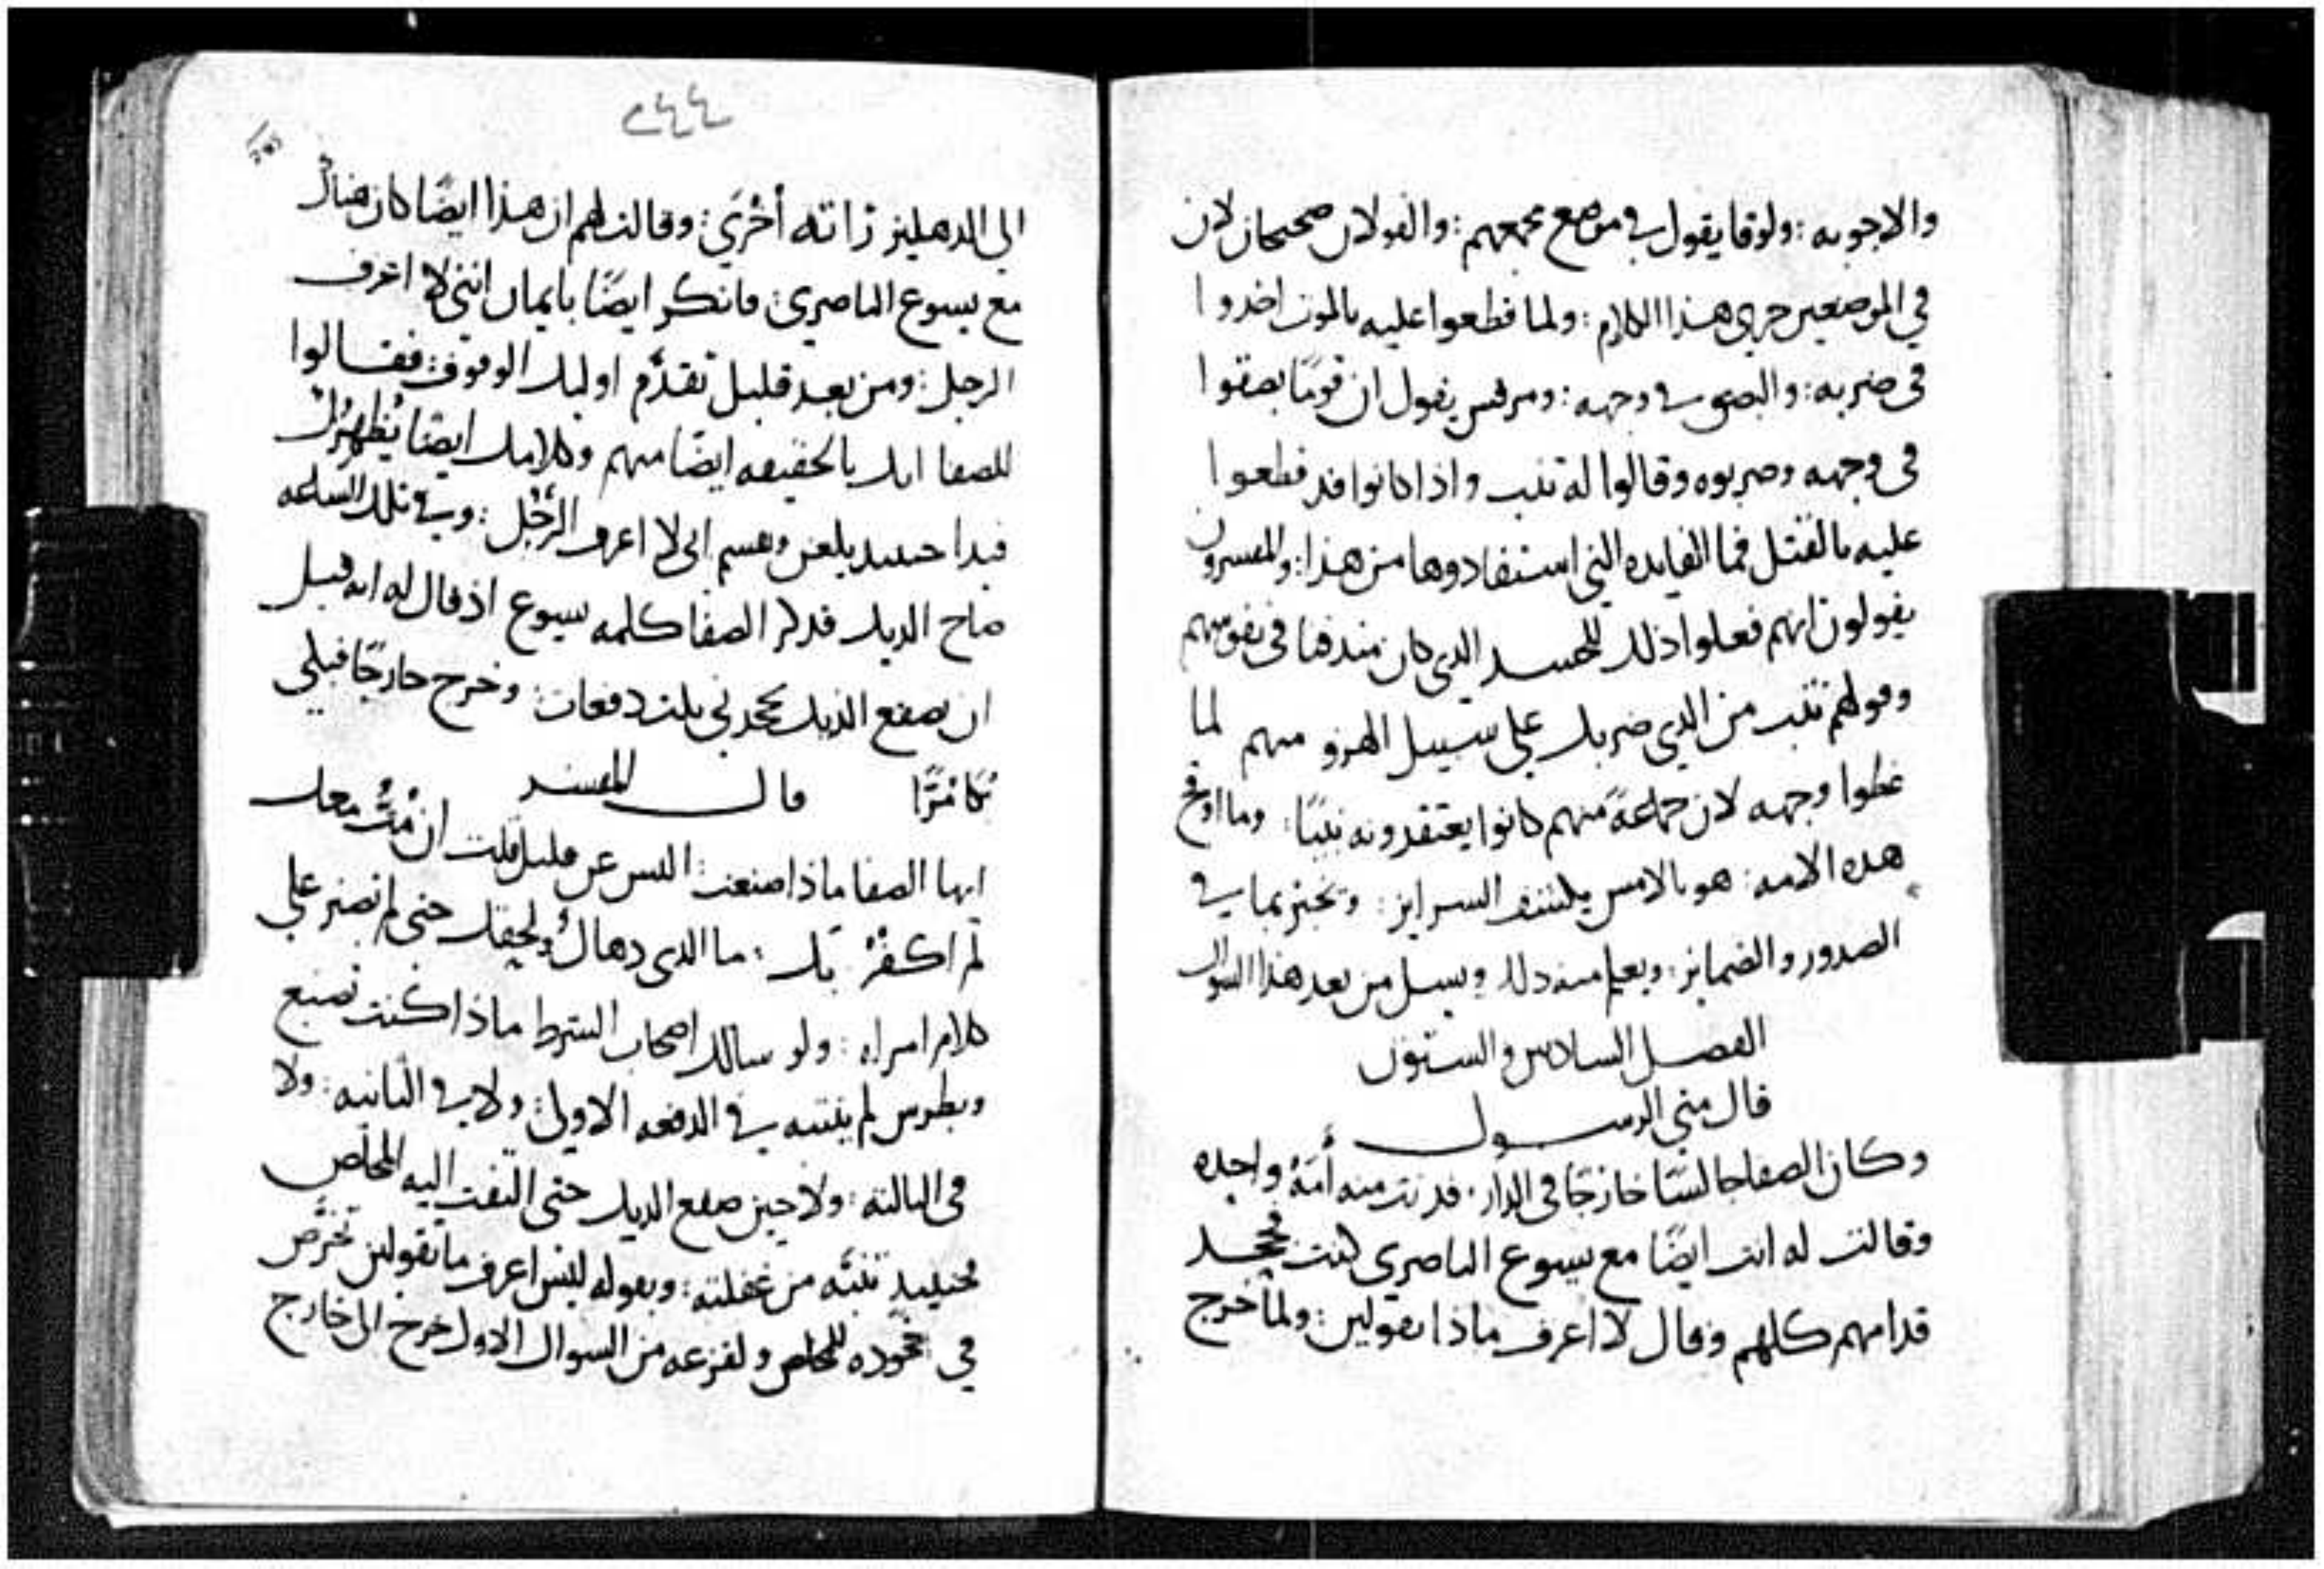 والاجوبه : ولوقا يقول في موضع مجمعهم : والقولان صحيحان لان
في الموضعين جرى هذا الكلام : ولما قطعوا عليه بالموت اخدوا
في ضربه : والبصق في وجهه : ومرقس يقول ان قومًا بصقوا
في وجهه وضربوه وقالوا له تنب واذا كانوا قد قطعوا
عليه بالقتل فما الفايده التي استفادوها من هذا : والمفسرون
يقولون انهم فعلوا ذلك للحسد الدي كان مندفنا في نفوسهم
وقولهم تنب من الدي ضربك علي سبيل الهزو منهم لما
غطوا وجهه لان جماعةً منهم كانوا يعتقدونه نبيًا : وما اوقح
هده الامه : هو بالامس يكشف السراير : وتخبر بما في
الصدور والضماير : ويعلم منه دلك ويسل من بعد هذا السوال
الفصل السادس والستون
قال متي الرسول
وكان الصفا جالسًا خارجًا في الدار : فدنت منه أمةٌ واحده
وقالت له انت ايضًا مع يسوع الناصري كنت فجحد
قدامهم كلهم وقال لا اعرف ماذا تقولين : ولما خرج
٢٤٤
الي الدهليز راته أخرَي : وقالت لهم ان هذا ايضًا كان هناك
مع يسوع الناصري : فانكر ايضًا بايمان انني لا اعرف
الرجل : ومن بعد قليل تقدَّم اوليك الوقوف : فقالوا
للصفا انك بالحقيقه ايضًا منهم وكلامك ايضًا يُظهرُك
فبدا حينيد يلعن ويقسم اني لا اعرف الرَّجُل : وفي تلك الساعه
صاح الديك فدكر الصفا كلمه يسوع اذ قال له انه قبل
ان يصقع الديك تجحدني تلت دفعات : وخرج خارجًا فبكي
بُكا مُرًّا قال المفسر
ايها الصفا ماذا صنعت : اليس عن قليل قلت ان مُتُّ معك
لم اكفُرُ بك : ما الدى دهاكَ ولحقك حتى لم تصبر علي
كلام امراه : ولو سالك اصحاب الشرط ماذا كنت تصنع
وبطرس لم ينتبه في الدفعه الاولي : ولا في التانيه : ولا
في التالته : ولا حين صقع الديك حتى التفت اليه المخلص
فحينيدٍ تنبَّه من غفلته : وبقوله ليس اعرف ما تقولين تخرَّص
في جحوده للمخلص ولفزعه من السوال الاول خرج الى خارج